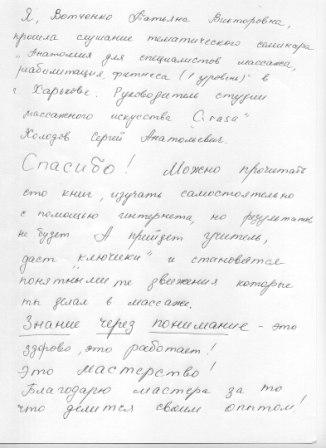 Я, Вотченко Татьяна Викторовна,
прошла слушание тематического семинара
„Анатомия для специалистов массажа,
реабилитация, фитнеса (1 уровень)" в
г. Харькове. Руководитель студии
массажного искусства
Холодов Сергей Анатольевич.
Спасибо! Можно прочитать
сто книг, изучать самостоятельно
с помощью интернета, но результата
не будет А прийдет учитель,
даст „ключики" и становятся
понятными те движения которые
ты делал в массаже.
Знание через понимание - это
здорово, это работает!
Это мастерство!
Благодарю мастера за то
что делится своим опытом!